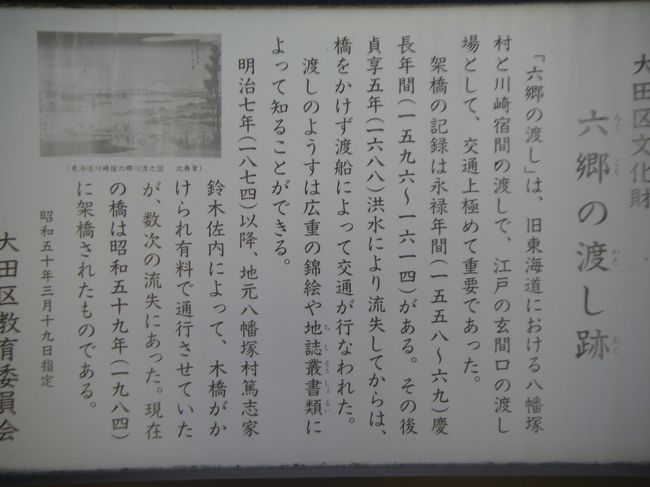 大田区文化財
六郷の渡し跡
ろく ごう わた あと
「六郷の渡し」は、旧東海道における八幡塚
村と川崎宿間の渡しで、江戸の玄関口の渡し
場として、交通上極めて重要であった。
架橋の記録は永禄年間(一五五八～六九)慶
長年間(一五九六～一六一四)がある。その後
貞享五年(一六八八)洪水により流失してからは、
橋をかけず渡船によって交通が行なわれた。
渡しのようすは広重の錦絵や地誌叢書類に
ちしそうしょるい
よって知ることができる。
明治七年(一八七四)以降、地元八幡塚村篤志家
鈴木佐内によって、木橋がか
けられ有料で通行させていた
が、数次の流失にあった。現在
の橋は昭和五十九年(一九八四)
に架橋されたものである。
昭和五十年三月十九日指定
大田区教育委員会
(東海道川崎宿六郷川渡之図 北寿筆)